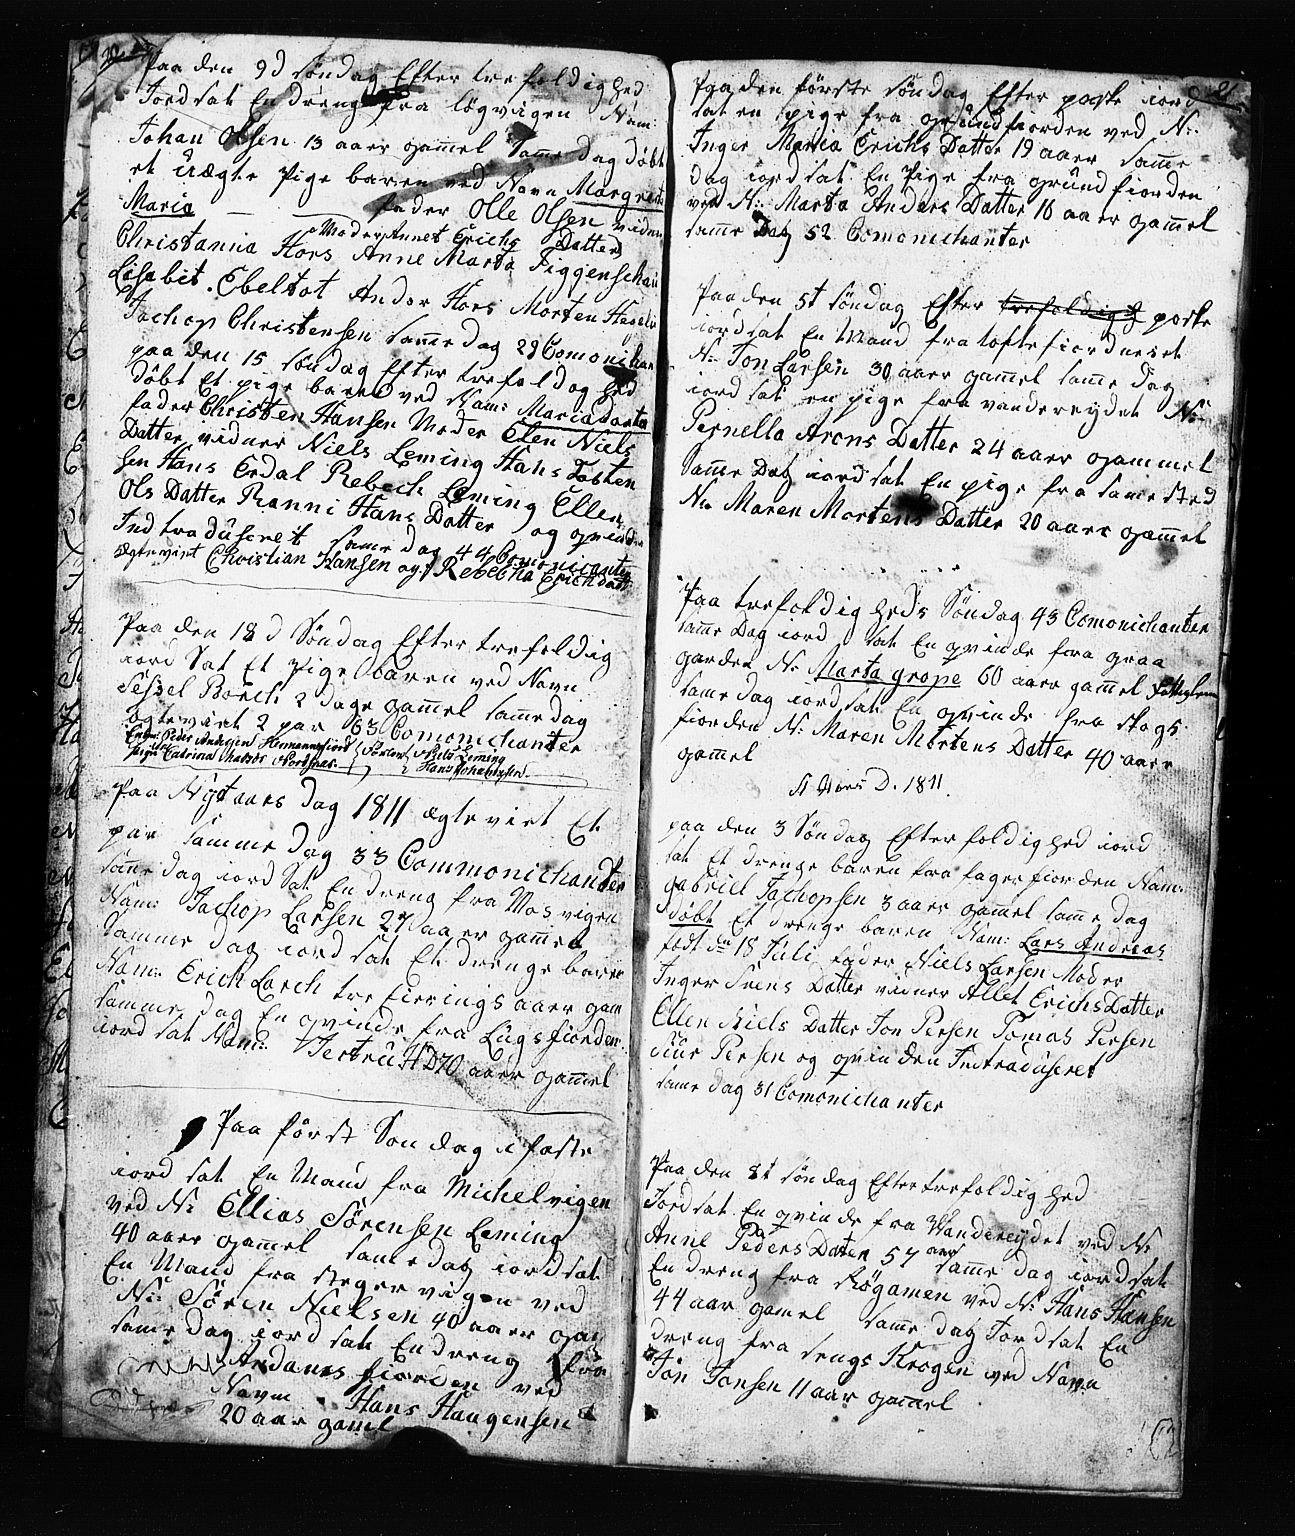 Paa den 9d söndag Efter trefoldighed
Jordsat En dreng fra lögvigen Nam:
Johan Olsen 13 aar gammel Samme dag döbt
et uægte Pige baren ved Navn Margrete
Maria — — fader Olle Olsen vidner
Moder Annet Erichs Datter
Christannia Hors Anne Marta Figgenschau
Lisabet Ebeltot Andor Hors Morten
Jachop Christensen samme dag 29 Comonichan
paa den 15 söndag Efter trefoldighed
döbt Et pige baren ved Nam: Maria dorte
fader Christen Hansen Moder Elen Niels
Datter vidner Niels Leming Hans Tosten
sen Hans Erdal Rebech Leming Ellen
Ols Datter Ranni Hans Datter og qvinden
Indtraduseret samme dag 44 Comonicanter
ægteviet Christian Hansen og Rebecha Erichdatt
Paa den 18d Söndag Efter trefoldig
iord Sat Et Pige baren ved Navn
Sessel Borch 2 dage gammel samme dag
ægteviet 2 par 63 Comonichanter
Peder Andersen Hermansfiord Forlover Niels Leming
Pigen Catrina Hans Johannsen
Paa Nytaars dag 1811 ægteviet Et
par samme dag 33 Commonichanter
samme dag iord Sat En dreng fra Mosvigen
Nam: Jachop Larsen 27 aaer gammel
samme dag iord sat Et drenge baren
Nam: Erich Larch tre fierings aaer gam
samme dag En qvinde fra Lügsfiorden
iord sat Nam: Jertru HD 70 aaer gammel
Paa först Söndag i faste
iord sat En Mand fra Michelvigen
ved N: Ellias Sörensen Leming
40 aaer gammel samme dag iord sat
En Mand fra Stegervigen ved
N: Sören Nielsen 40 aaer gam
samme dag iord sat En dreng fra
Ardanesfiorden ved
Navn Hans Haagensen
20 aar gamel
21
Paa den förste söndag Efter paske iord
sat en pige fra grundfiorden ved N:
Inger Maria Erichs Datter 19 aaer samme
dag iord sat En Pige fra Grundfiorden
ved N: Marta Anders Datter 16 aaer gammel
samme Dag 52 Comonichanter
Paa den 5t söndag Efter trefoldigh paske
iordsat En Mand fra toftefiordneset
N: Jon Larsen 30 aaer gammel samme dag
iord sat en pige fra vandereydet N:
Pernella Arons Datter 24 aaer gammel
samme Dag iord sat En pige fra samme sted
N: Maren Mortens Datter 20 aaer gammel
Paa trefoldigheds Söndag 43 Comonichanter
samme Dag iord sat En qvinde fra graa
garden N: Marta grope 60 aaer gammel
samme dag iord sat En qvinde fra skogs
fiorden N: Maren Mortens Datter 40 aaer
gammel
A Vors D. 1811
paa den 3 Söndag Efter foldighed iord
sat Et drenge baren fra fagerfiorden Nam:
Gabriel Jachopsen 3 aaer gammel samme dag
döbt Et drenge baren Nam: Lars Andreas
födt d 18 Juli fader Niels Larsen Moder
Inger Svens Datter vidner Allet Erichs Datter
Ellen Niels Datter Jon Persen Tomas Persen
Siur Persen og qvinden Intraduseret
samme dag 31 Comonichanter
Paa den 8t söndag Efter trefoldighed
Jordsat En qvinde fra Vandereydet ved N:
Anne Peders Dater 57 aar samme dag iord sat
En dreng fra Röganen ved N: Hans Hansen
44 aar gamel samme dag Jordsat En
dreng fra sengs Krogen ved Navn
Jon Jonsen 11 aar gammel